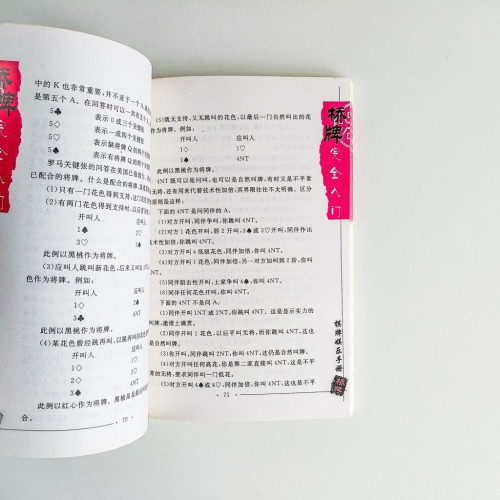 桥牌
完全入门
中的 K 也非常重要,并不亚于一个 A
是第五个 A。在问答时可以一共有五个 A
5♣ 表示 0 或三个关键张
5◇ 表示一或四个关键张
5♡ 表示缺将牌 Q
5♠ 表示有将牌 Q
罗马关键张的问答在美国已
已配合的将牌。什么是配合的将牌
(1)只有一门花色得到支持,这门
(2)有两门花色得到支持时,以后
开叫人 应叫人
1♠ 2
3♡ 3♠
此例以黑桃作为将牌。
(3)应叫人跳叫新花色,后来又
色作为将牌。例如:
开叫人 应叫人
1◇
3◇
此例以黑桃作为将牌。
(4)某花色曾经跳再叫,以跳再叫的
开叫人 应叫人
1♡
3♡
此例以红心作为将牌。黑桃虽是最后
合。
· 70 ·
(5)既无支持,又无跳叫的花色,以最后一门自然叫出的花
作为将牌。例如:
开叫人 应叫人
1◇ 1♡
1♠ 4NT
此例以黑桃作为将牌。
4NT 可以是问叫,也可以是自然叫牌。有时又是不平常
无将,还有用来代替技术性加倍,真界限往往不太明确。区分
原则是这样:
下面的 4NT 是问同伴的 A。
(1)对方开叫,同伴争叫,你叫 4NT。
(2)对方 1 花色开叫,跟 2 开叫,3♠或 3♡开叫,同伴作出
术性加倍,你跳叫 4NT。
(3)对方开叫 4 低级花色,同伴加倍,你叫 4NT。
(4)对方开叫 1 花色,同伴加倍,另一对方加叫到 2 阶,你叫
4NT。
(5)同伴阻击性开叫,上家争叫 4♠,你叫 4NT。
(6)同伴任何花色开叫,你叫 4NT。
下面的 4NT 不是问 A:
(1)同伴开叫 1NT 或 2NT,你跳叫 4NT。这是显示实力的
叫,邀请上满贯。
(2)同伴开叫 1 花色,以后平叫无将,而你跳叫 4NT,这也
是自然叫牌。
(3)你开叫,同伴跳叫 2NT,你叫 4NT,这仍是自然叫牌。
(4)对方开叫高花,你是第二家直接叫 4NT,这是不平
的无将,要求同伴叫一门低花。
(5)对方开叫 4♠或 4♡,同伴加倍,你叫 4NT,这是不平
· 71 ·
桥牌
完全入门
棋牌娱乐手册